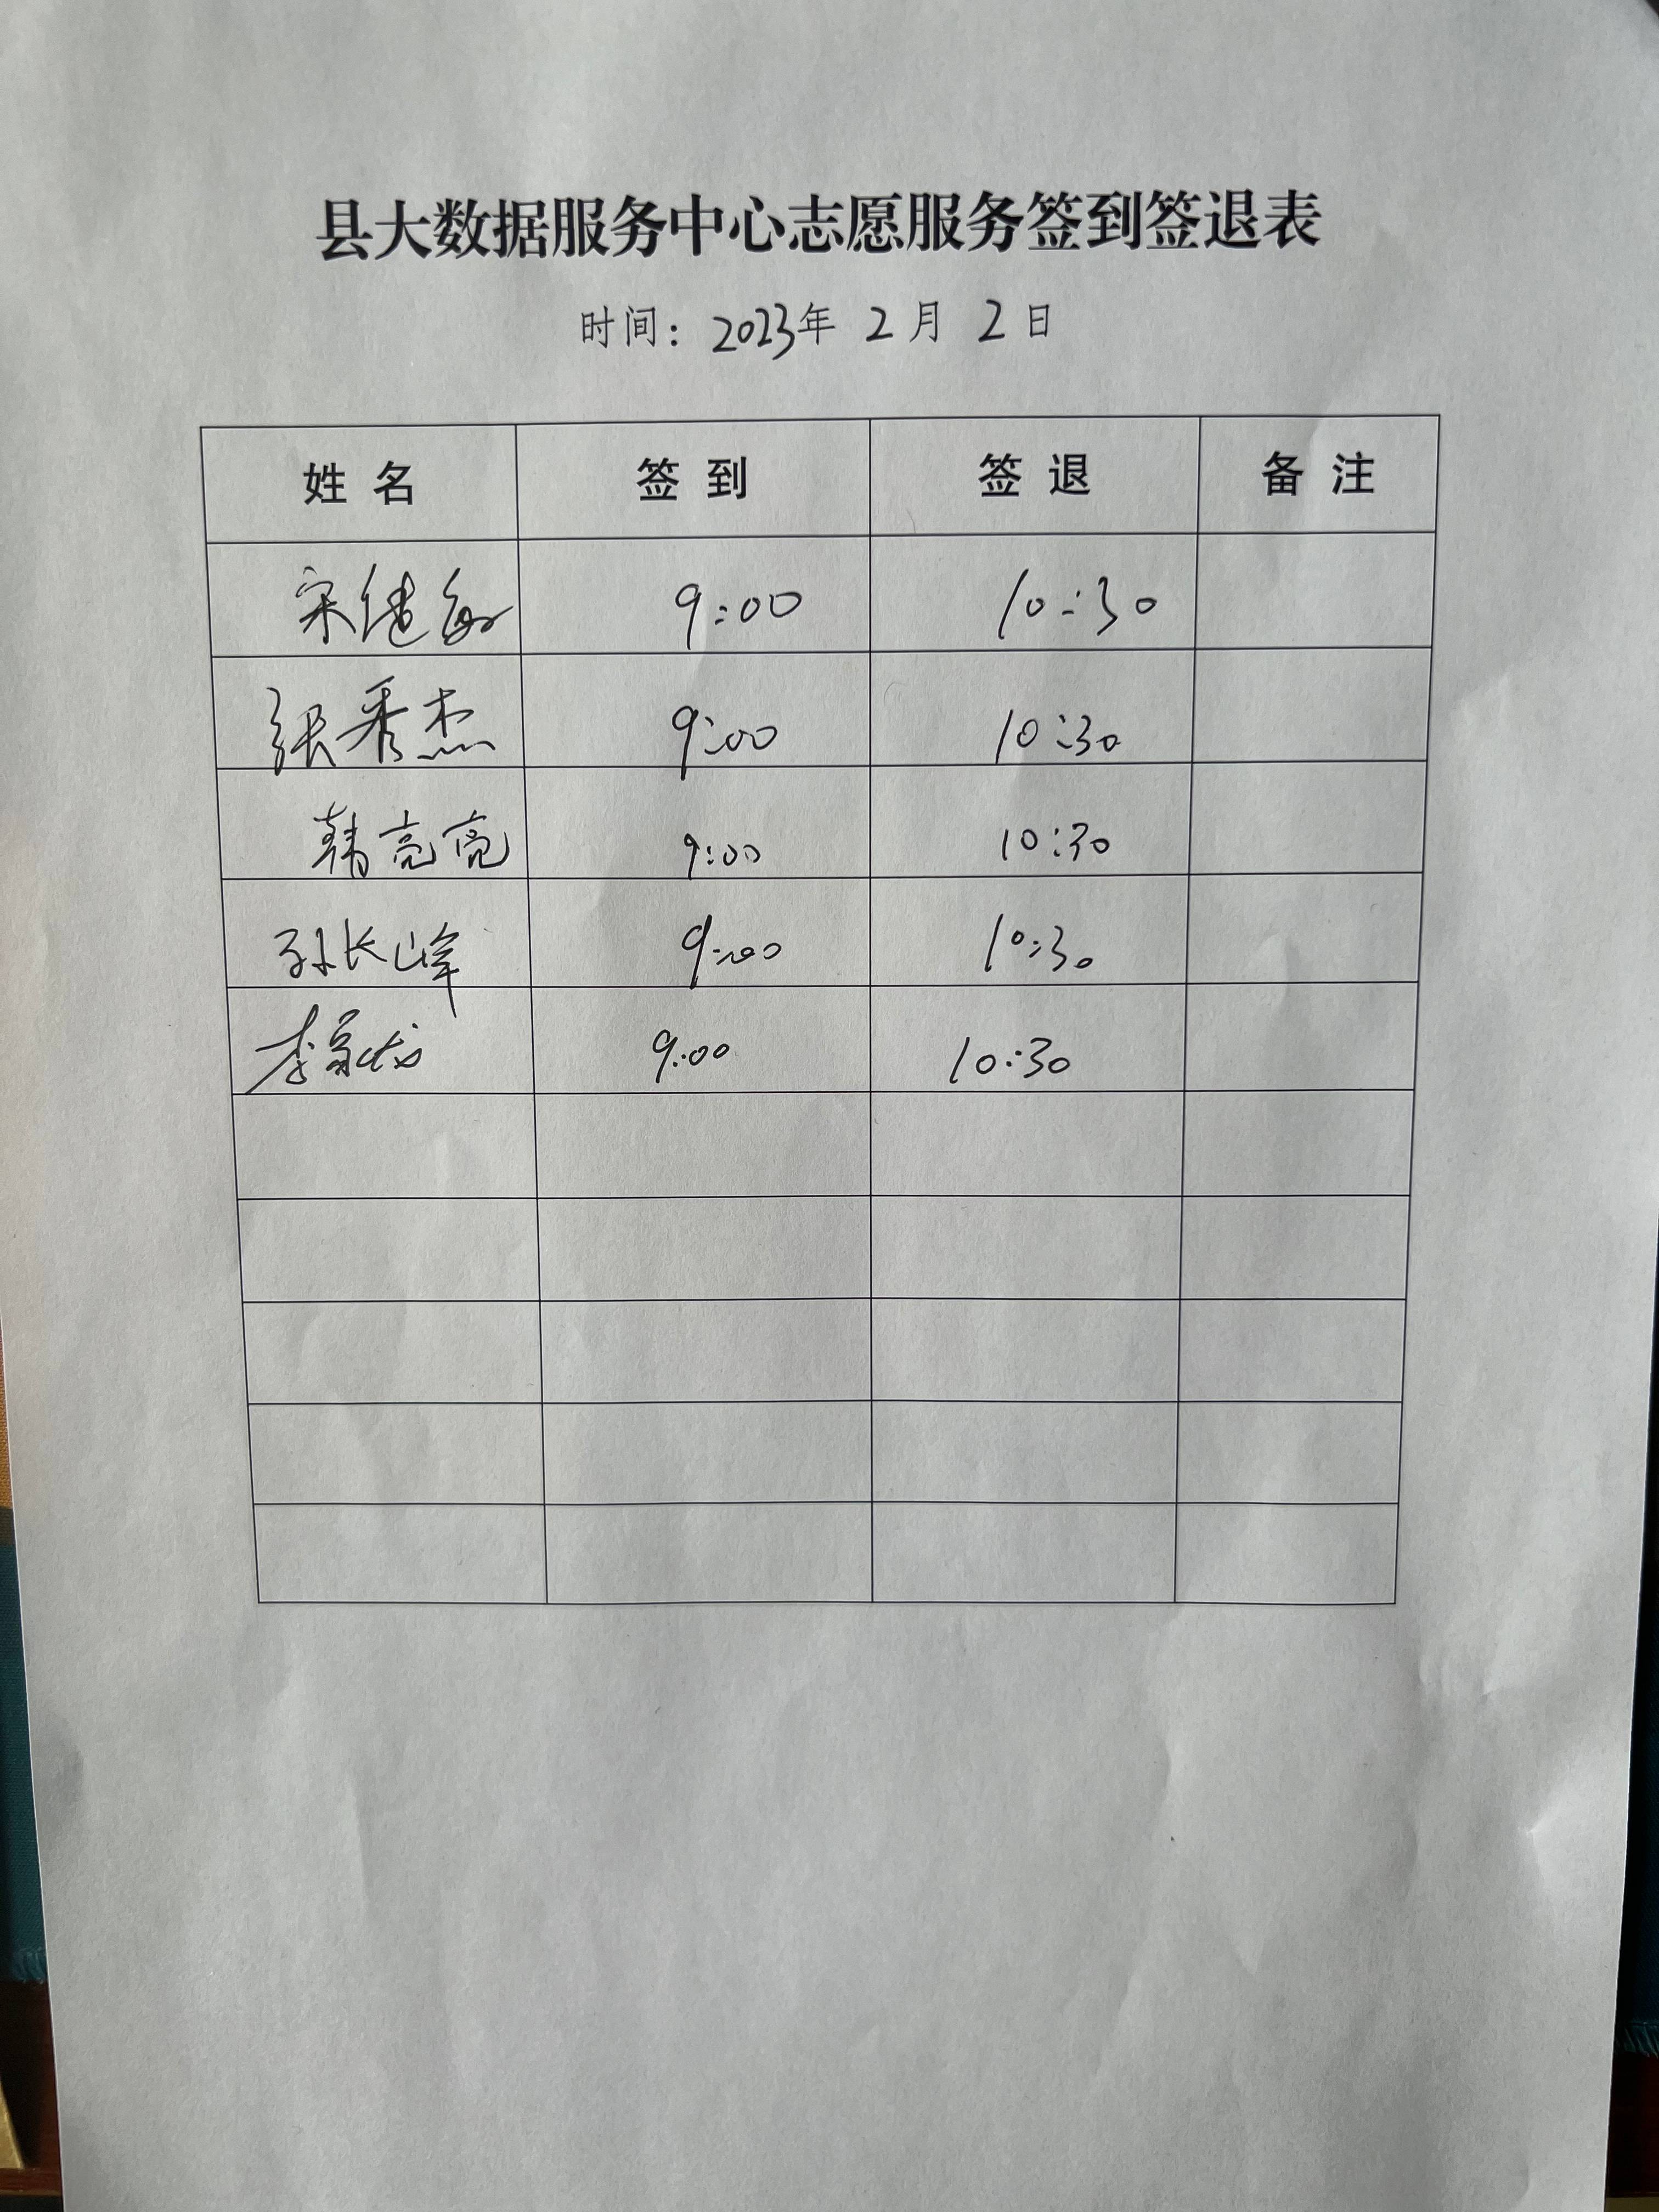 县大数据服务中心志愿服务签到签退表
时间：2023年 2 月 2 日
姓名 签到 签退 备注
宋健敏 9:00 10:30
张秀杰 9:00 10:30
韩亮亮 9:00 10:30
孙长峰 9:00 10:30
李 9:00 10:30